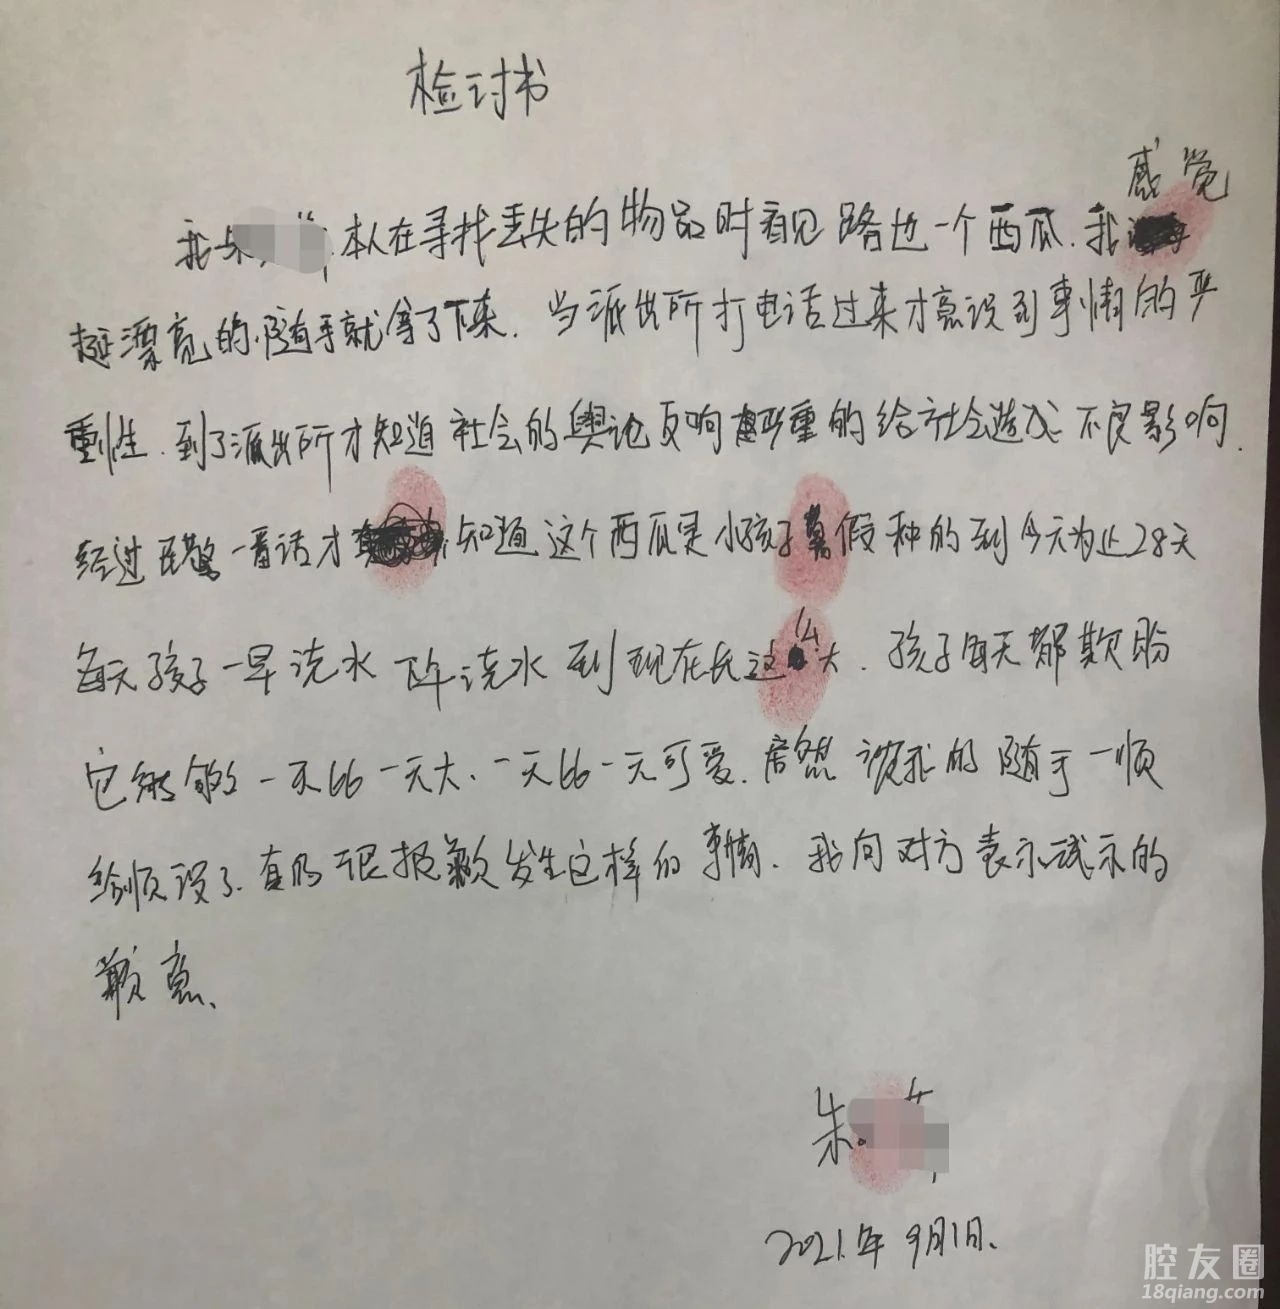 检讨书
感觉
我朱 本人在寻找丢失的物品时看见路边一个西瓜.我
挺漂亮的.随手就拿了下来.当派出所打电话过来才意识到事情的严
重性.到了派出所才知道社会的舆论反响 严重的给社会造成不良影响.
经过民警一番话才 知道这个西瓜是小孩子暑假种的到今天为止28天
每天孩子一早浇水下午浇水到现在长这么大.孩子每天都期盼
它能够一天比一天大、一天比一天可爱.居然被我的随手一顺
给顺没了.真的很抱歉发生这样的事情.我向对方表示 的
歉意、
朱
2021.年9月1日.
腔友圈
18qiang.com